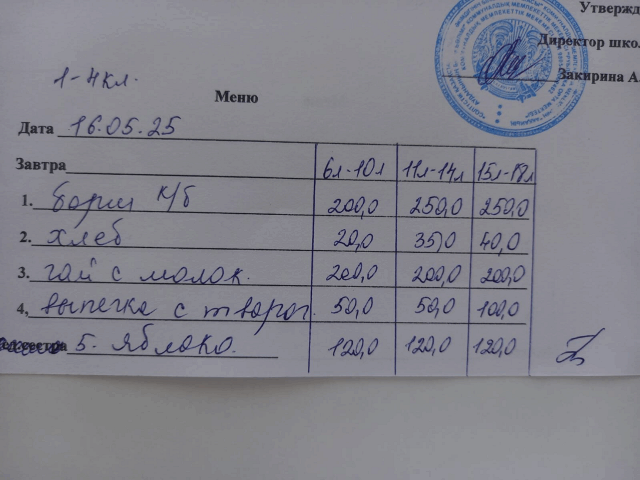 Утвержд
Директор шко
Закирина А.
1-4 кл.
Меню
Дата 16.05.25
Завтра 6л-10л 11л-14л 15л-18л
1. борщ к/б 200,0 250,0 250,0
2. хлеб 20,0 35,0 40,0
3. чай с молок. 200,0 200,0 200,0
4, выпечка с творог. 50,0 50,0 100,0
5. яблоко. 120,0 120,0 120,0